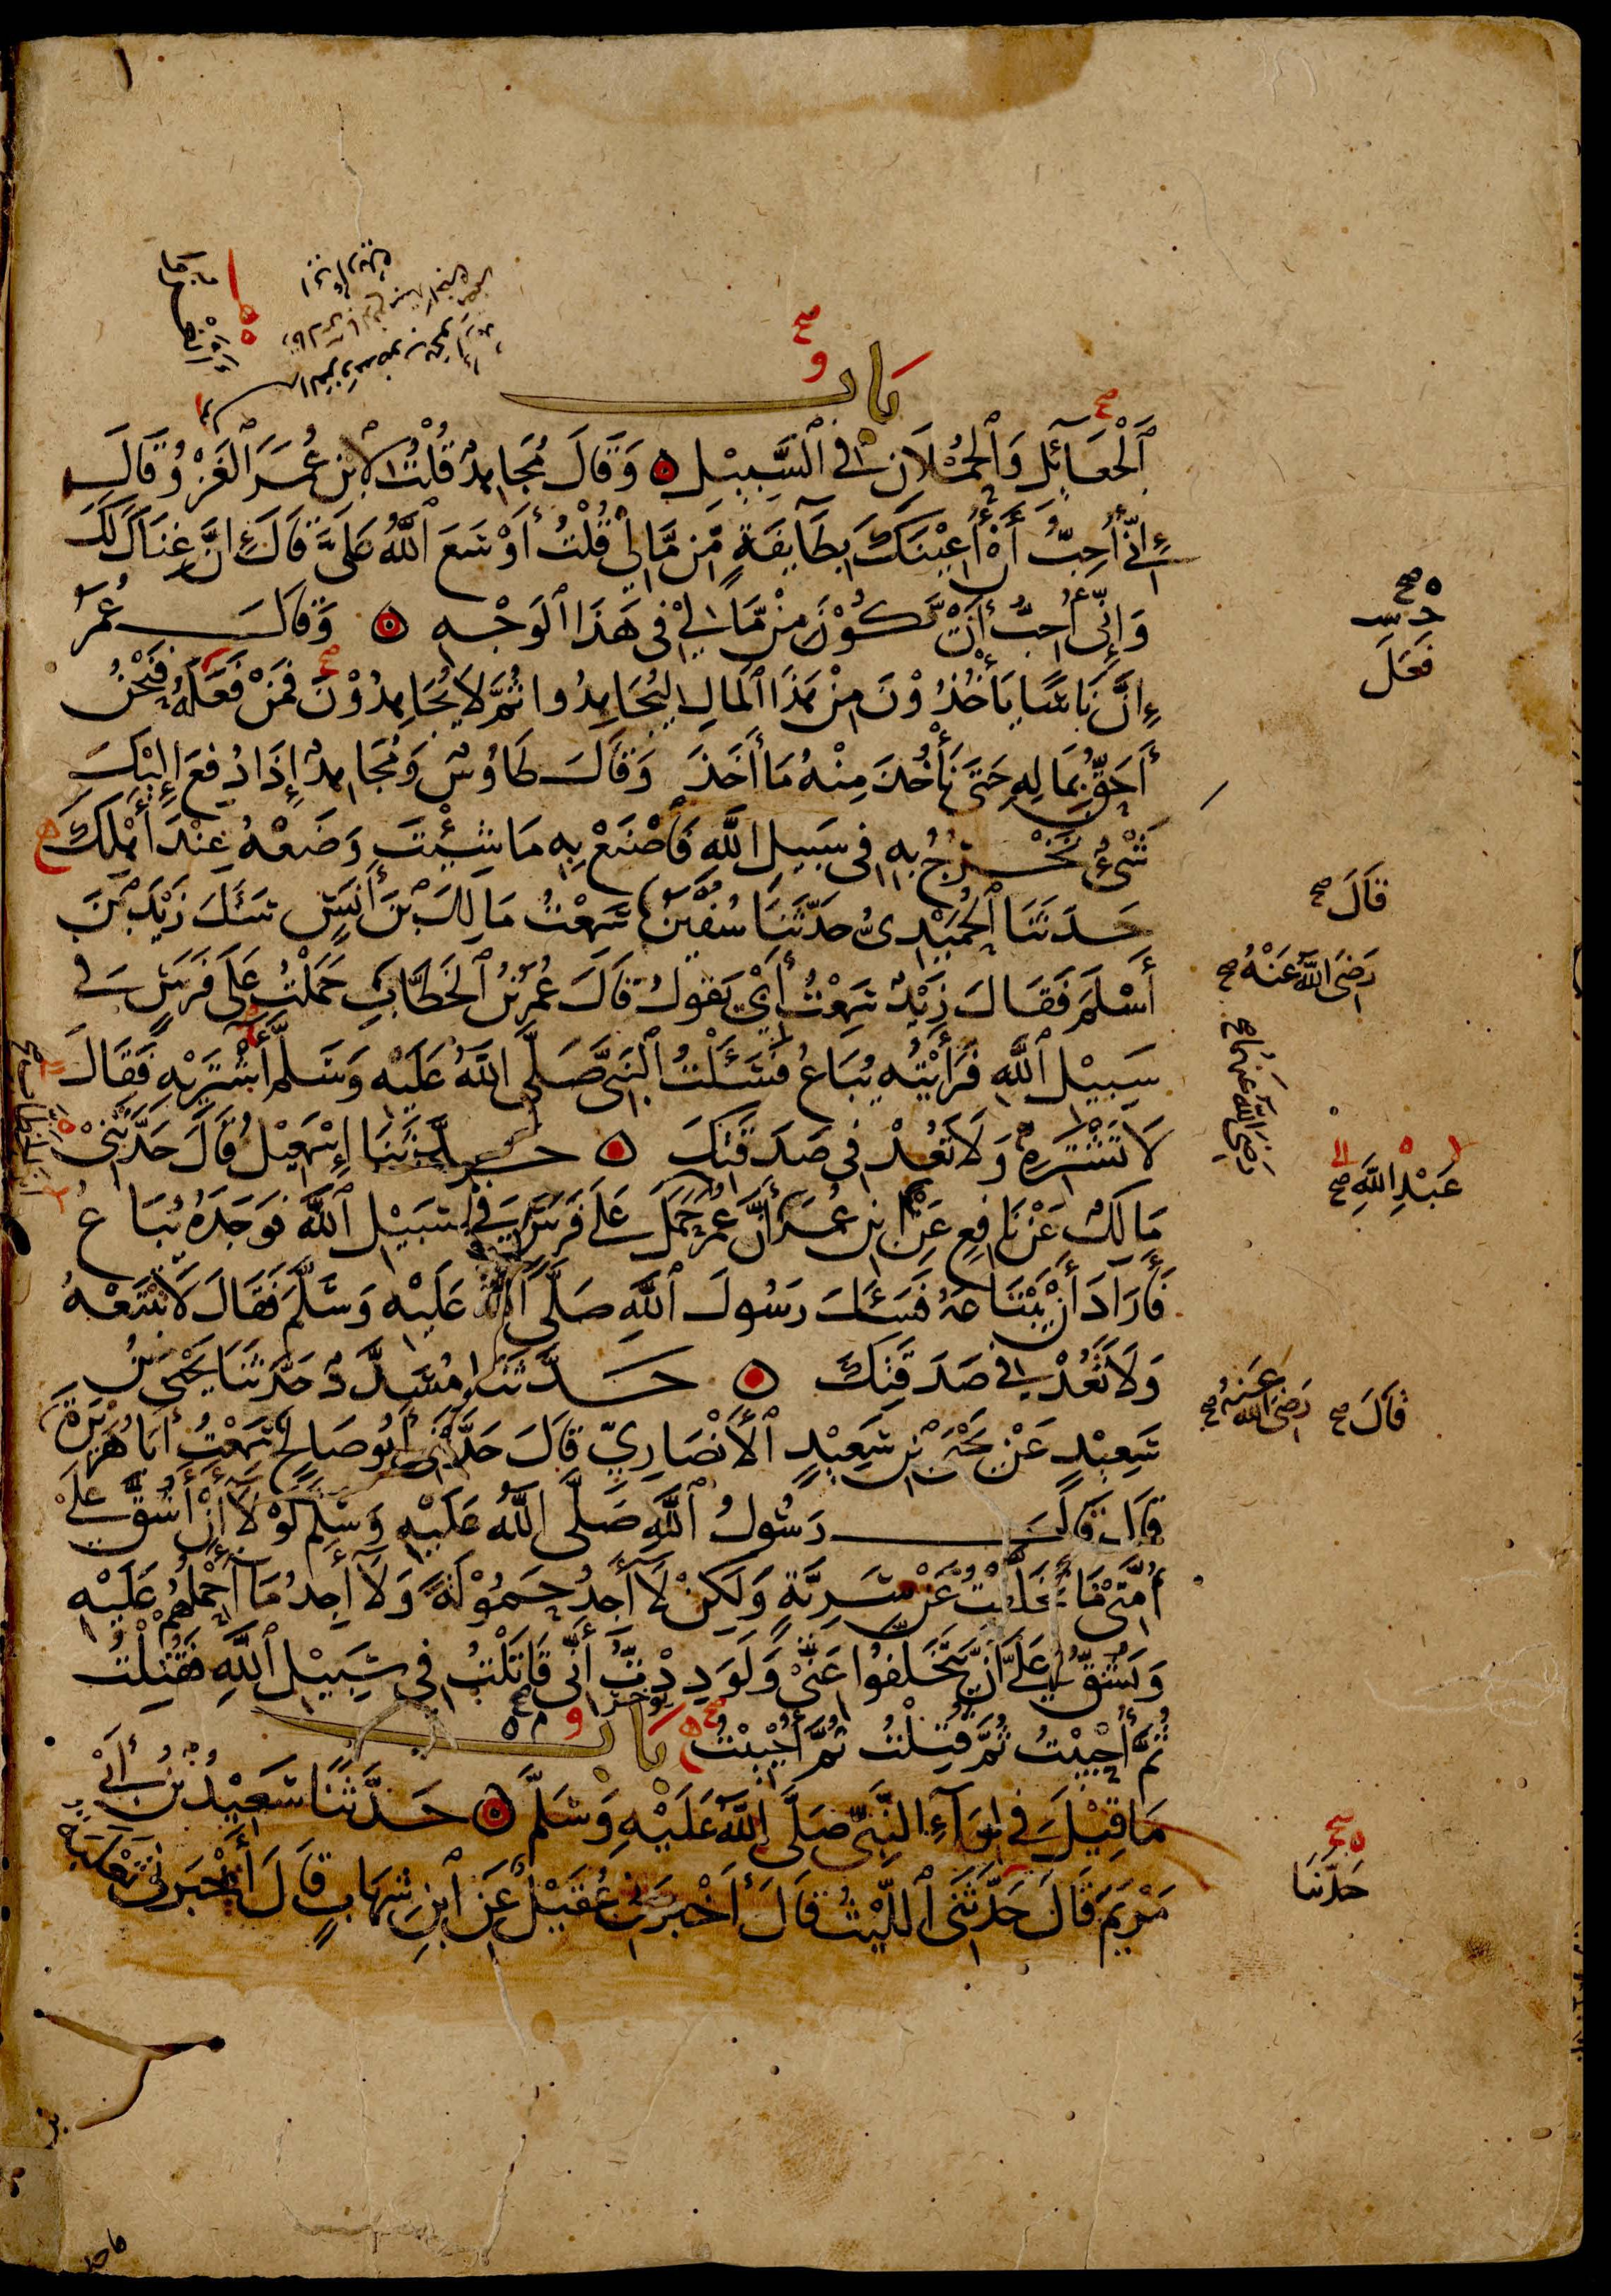 باب
ٱلْجَعَآئِلِ وَٱلْحُمْلَانِ فِي ٱلسَّبِيْلِ وَقَالَ مُجَاهِدٌ قُلْتُ لِابْنِ عُمَرَ ٱلْغَزْوُ قَالَ
إِنِّي أُحِبُّ أَنْ أُعِيْنَكَ بِطَآئِفَةٍ مِّن مَّالِي قُلْتُ أَوْسَعَ ٱللَّهُ عَلَيَّ قَالَ إِنَّ غِنَاكَ لَكَ
وَإِنِّي أُحِبُّ أَنْ يَّكُوْنَ مِنْ مَّالِيْ فِي هَذَا ٱلْوَجْهِ وَقَالَ عُمَرُ
إِنَّ نَاسًا يَأْخُذُوْنَ مِنْ هَذَا ٱلْمَالِ لِيُجَاهِدُوا ثُمَّ لَا يُجَاهِدُوْنَ فَمَنْ فَعَلَهُ فَنَحْنُ
أَحَقُّ بِمَالِهِ حَتَّى نَأْخُذَ مِنْهُ مَا أَخَذَ وَقَالَ طَاوُسٌ وَمُجَاهِدٌ إِذَا دُفِعَ إِلَيْكَ
شَيْءٌ تَخْرُجُ بِهِ فِي سَبِيلِ اللَّهِ فَاصْنَعْ بِهِ مَا شِئْتَ وَضَعْهُ عِنْدَ أَهْلِكَ
حَدَّثَنَا ٱلْحُمَيْدِيُّ حَدَّثَنَا سُفْيٰنُ سَمِعْتُ مَالِكَ بْنَ أَنَسٍ سَئَلَ زَيْدَ بْنَ
أَسْلَمَ فَقَالَ زَيْدٌ سَمِعْتُ أَبِي يَقُولُ قَالَ عُمَرُ بْنُ ٱلْخَطَّابِ حَمَلْتُ عَلَى فَرَسٍ فِي
سَبِيْلِ ٱللَّهِ فَرَأَيْتُهُ يُبَاعُ فَسَئَلْتُ ٱلنَّبِيَّ صَلَّى اللَّهُ عَلَيْهِ وَسَلَّمَ أَشْتَرِيْهِ فَقَالَ
لَا تَشْتَرِهِ وَلَا تَعُدْ فِي صَدَقَتِكَ حَدَّثَنَا إِسْمَعِيْلُ قَالَ حَدَّثَنِيْ
مَالِكٌ عَنْ نَافِعٍ عَنِ ابْنِ عُمَرَ أَنَّ عُمَرَ حَمَلَ عَلَى فَرَسٍ فِي سَبِيْلِ ٱللَّهِ فَوَجَدَهُ يُبَاعُ
فَأَرَادَ أَنْ يَّبْتَاعَهُ فَسَئَلَ رَسُولَ ٱللَّهِ صَلَّى ٱللَّهُ عَلَيْهِ وَسَلَّمَ فَقَالَ لَا تَبْتَعْهُ
وَلَا تَعُدْ فِي صَدَقَتِكَ حَدَّثَنَا مُسَدَّدٌ حَدَّثَنَا يَحْيَى بْنُ
سَعِيْدٍ عَنْ يَحْيَى بْنِ سَعِيْدٍ ٱلْأَنْصَارِيِّ قَالَ حَدَّثَنِي أَبُو صَالِحٍ سَمِعْتُ أَبَا هُرَيْرَةَ
قَالَ قَالَ رَسُولُ ٱللَّهِ صَلَّى اللَّهُ عَلَيْهِ وَسَلَّمَ لَوْ لَا أَنْ أَشُقَّ عَلَى
أُمَّتِيْ مَا تَخَلَّفْتُ عَنْ سَرِيَّةٍ وَلَكِنْ لَا أَجِدُ حَمُوْلَةً وَلَا أَجِدُ مَا أَحْمِلُهُمْ عَلَيْهِ
وَيَشُقُّ عَلَيَّ أَنْ يَّتَخَلَّفُوا عَنِّيْ وَلَوَدِدْتُّ أَنِّي قَاتَلْتُ فِي سَبِيْلِ ٱللَّهِ فَقُتِلْتُ
ثُمَّ أُحْيِيْتُ ثُمَّ قُتِلْتُ ثُمَّ أُحْيِيْتُ باب
مَا قِيْلَ فِي لِوَآءِ النَّبِيِّ صَلَّى اللَّهُ عَلَيْهِ وَسَلَّمَ حَدَّثَنَا سَعِيْدُ بْنُ أَبِي
مَرْيَمَ قَالَ حَدَّثَنِي ٱللَّيْثُ قَالَ أَخْبَرَنِي عُقَيْلٌ عَنِ ٱبْنِ شِهَابٍ قَالَ أَخْبَرَنِي ثَعْلَبَةُ
فَعَلَ
قَالَ صح
رَضِيَ اللَّهُ عَنْهُ صح
رَضِيَ اللَّهُ عَنْهُمَا صح
عَبْدِ اللَّهِ صح
قَالَ صح رَضِيَ اللَّهُ عَنْهُ صح
حَدَّثَنَا